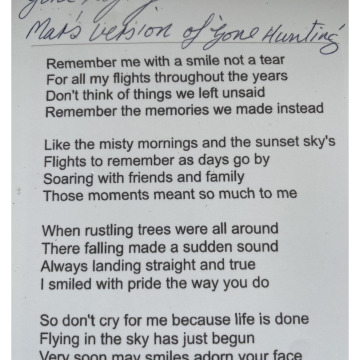 Mars version of 'Gone Hunting'
Remember me with a smile not a tear
For all my flights throughout the years
Don't think of things we left unsaid
Remember the memories we made instead
Like the misty mornings and the sunset sky's
Flights to remember as days go by
Soaring with friends and family
Those moments meant so much to me
When rustling trees were all around
There falling made a sudden sound
Always landing straight and true
I smiled with pride the way you do
So don't cry for me because life is done
Flying in the sky has just begun
Very soon may smiles adorn your face